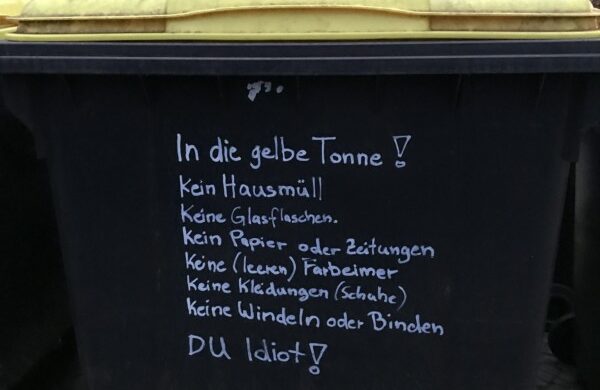 In die gelbe Tonne!
Kein Hausmüll
Keine Glasflaschen.
Kein Papier oder Zeitungen
Keine (leeren) Farbeimer
Keine Kleidungen (Schuhe)
Keine Windeln oder Binden
DU Idiot!